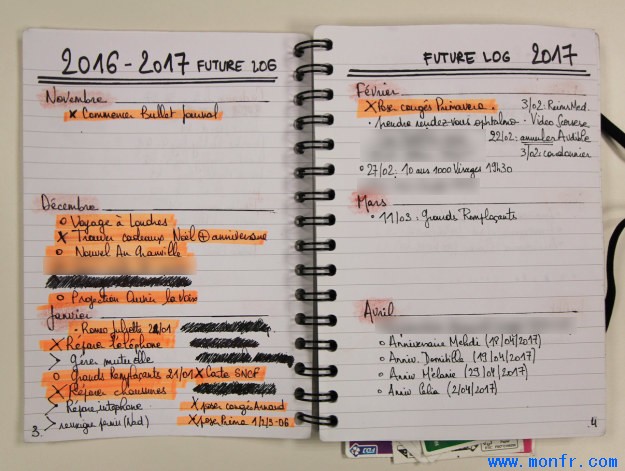 2016-2017 FUTURE LOG
Novembre
x Commencer Bullet Journal
Décembre
o Voyage à Londres
x Trouver cadeaux Noël + anniversaire
o Nouvel An Granville
o Projection Ouvrir la Voix
Janvier
• Romeo Juliette 21/01
x Réparer téléphone
> Gérer mutuelle
o Grands Remplaçants 21/01 x Carte SNCF
x Réparer chaussures
> Réparer interphone x poser congés Arnaud
> x poser Prima 1/2/3-06
3.
FUTURE LOG 2017
Février
x Poser congés Primavera. 3/02:
• prendre rendez-vous ophtalmo - Video
22/02: annuler Audible
3/02: cordonnier
o 27/02: 10 ans 1000 Visages 19h30
Mars
o 11/03: Grands Remplaçants
Avril
o Anniversaire Mehdi (18/04/2017)
o Anniv. Domitille (19/04/2017)
o Anniv Mélanie (29/04/2017)
o Anniv Célia (2/04/2017)
4
FDJ
www.monfr.com